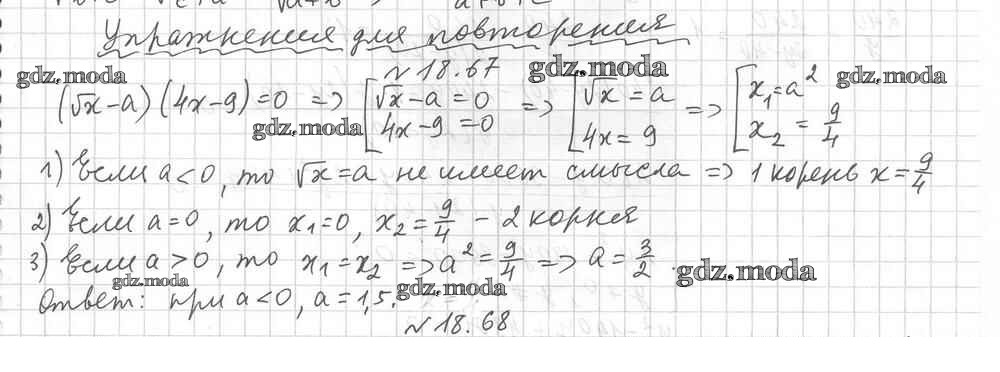 Упражнения для повторения
№ 18.67
gdz.moda gdz.moda gdz.moda
(√x-a)(4x-9)=0 => [√x-a=0 4x-9=0 => [√x=a 4x=9 => [x₁=a² x₂=9/4
gdz.moda
1) Если a<0, то √x=a не имеет смысла => 1 корень x=9/4
2) Если a=0, то x₁=0, x₂=9/4 - 2 корня
3) Если a>0, то x₁=x₂ => a²=9/4 => a=3/2
gdz.moda gdz.moda gdz.moda
Ответ: при a<0, a=1,5.
№ 18.68